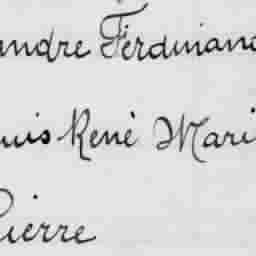 andre Ferdinand
ouis René Mari
Pierre